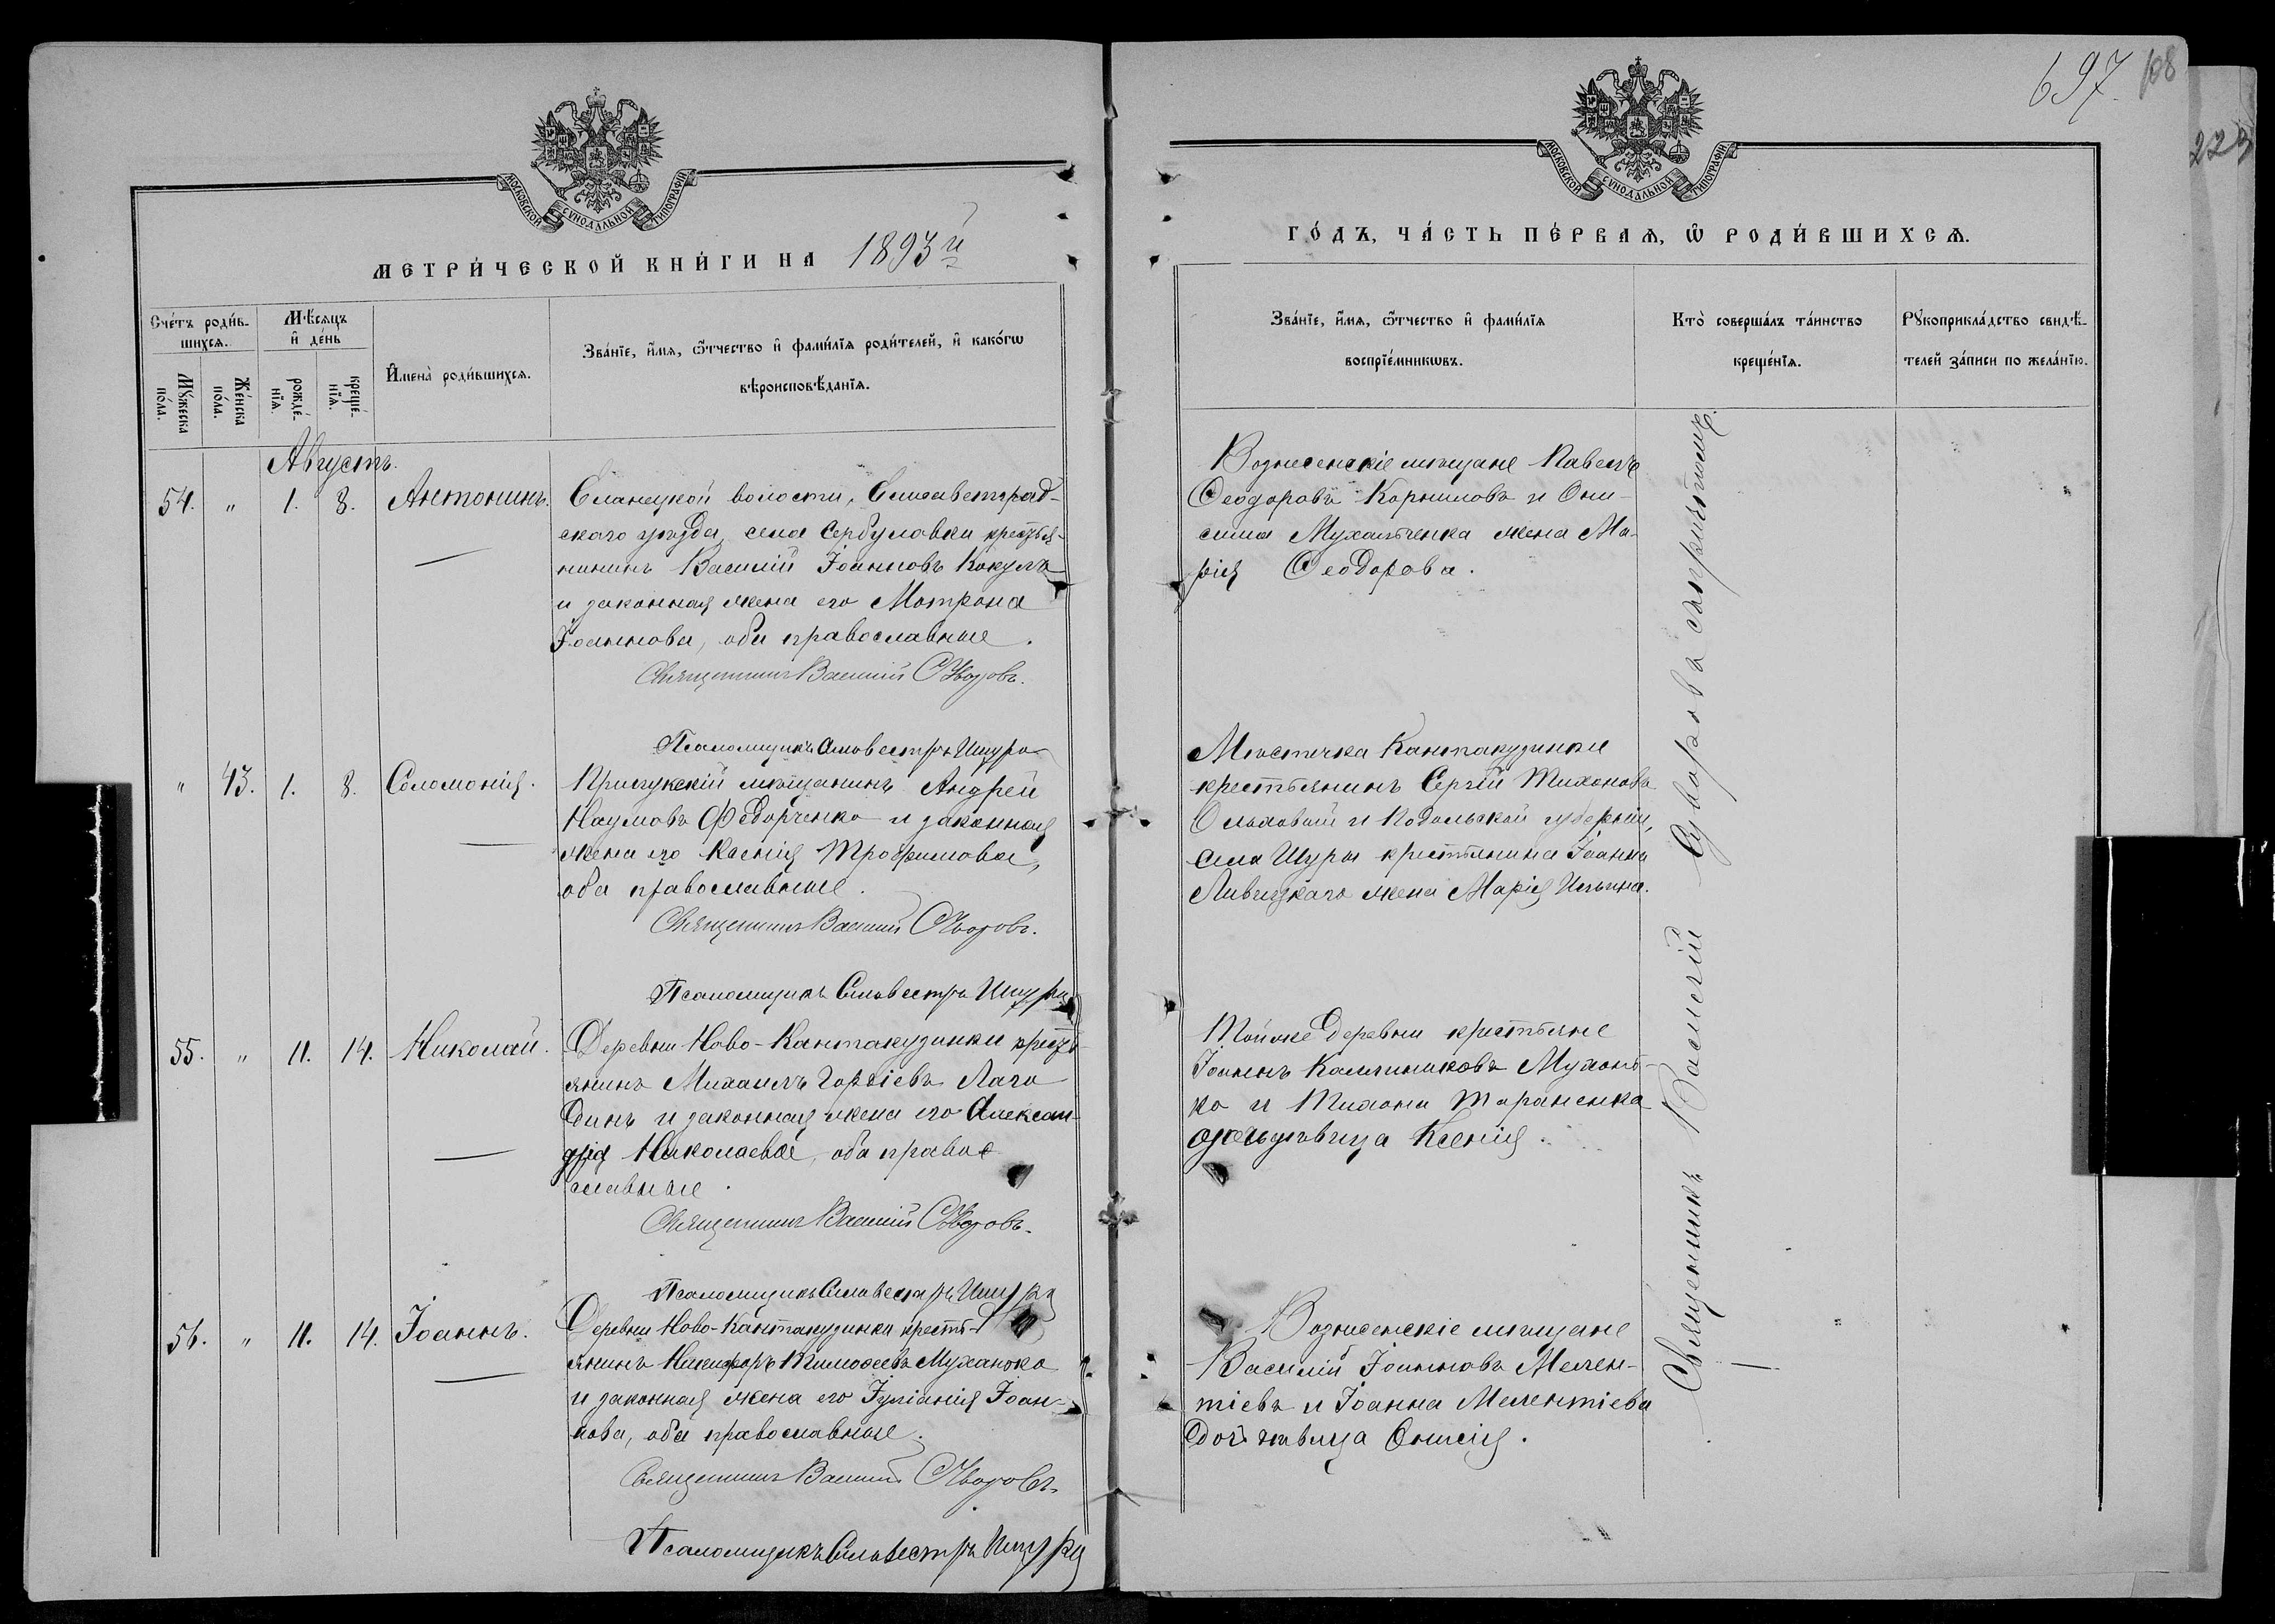 697.
108
223
МОСКОВСКОЙ СУНОДАЛЬНОЙ ТИПОГРАФІИ
МЕТРИ́ЧЕСКОЙ КНИ́ГИ НА 1893й
Сче́тъ роди́в-
шихсѧ.
Мѣ́сѧцъ
и҆ де́нь
Мꙋ́жеска
по́ла.
Же́нска
по́ла.
рожде́-
нїѧ.
креще́-
нїѧ.
И҆мена̀ роди́вшихсѧ.
Зва́нїе, и҆́мѧ, ѻ҆́тчество и҆ фами́лїѧ роди́телей, и҆ како́гѡ
вѣроисповѣ́данїѧ.
Августъ.
54. " 1. 8. Антонинъ.
Еланецкой волости, Елисаветград-
скаго уѣзда, села Сербуловки крестья-
нинъ Василій Іоанновъ Кокулъ
и законная жена его Матрона
Іоаннова, оба православные.
Священникъ Василій Суворовъ.
Псаломщикъ Сильвестръ
" 43. 1. 8. Соломонія.
Прилукскій мѣщанинъ Андрей
Наумовъ Федорченко и законная
жена его Ксенія Трофимова,
оба православные.
Священникъ Василій Суворовъ.
Псаломщикъ Сильвестръ
55. " 11. 14. Николай.
Деревни Ново-Кантакузинки кресть-
янинъ Михаилъ Лаго
динъ и законная жена его Алексан-
дра Николаева, оба право
славные.
Священникъ Василій Суворовъ.
Псаломщикъ Сильвестръ
56. " 11. 14. Іоаннъ.
Деревни Ново-Кантакузинки кресть-
янинъ Никифоръ Тимоѳеевъ
и законная жена его Іуліанія Іоан-
нова, оба православные.
Священникъ Василій Суворовъ.
Псаломщикъ Сильвестръ
МОСКОВСКОЙ СУНОДАЛЬНОЙ ТИПОГРАФІИ
ГО́ДЪ, ЧА́СТЬ ПЕ́РВАѦ, Ѡ҆ РОДИ́ВШИХСѦ.
Зва́нїе, и҆́мѧ, ѻ҆́тчество и҆ фами́лїѧ
воспрїе́мникѡвъ.
Кто̀ соверша́лъ та́инство
креще́нїѧ.
Рꙋкоприкла́дство свидѣ́-
телей за́писи по жела́нїю.
Вознесенскіе мѣщане Павелъ
Ѳеодоровъ Корниловъ и Они-
сима жена Ма-
рія Ѳеодорова.
Мѣстечка Кантакузинки
крестьянинъ Сергій Тихоновъ
и Подольской губерніи,
села Щуры крестьянина Іоанна
жена Марія Ильина.
Той же деревни крестьяне
Іоаннъ Калинниковъ
ко и Тихона Тараненка
Ксенія.
Вознесенскіе мѣщане
Василій Іоанновъ Мелен-
тіевъ и Іоанна Мелентіева
Онисія.
Священникъ Василій Суворовъ